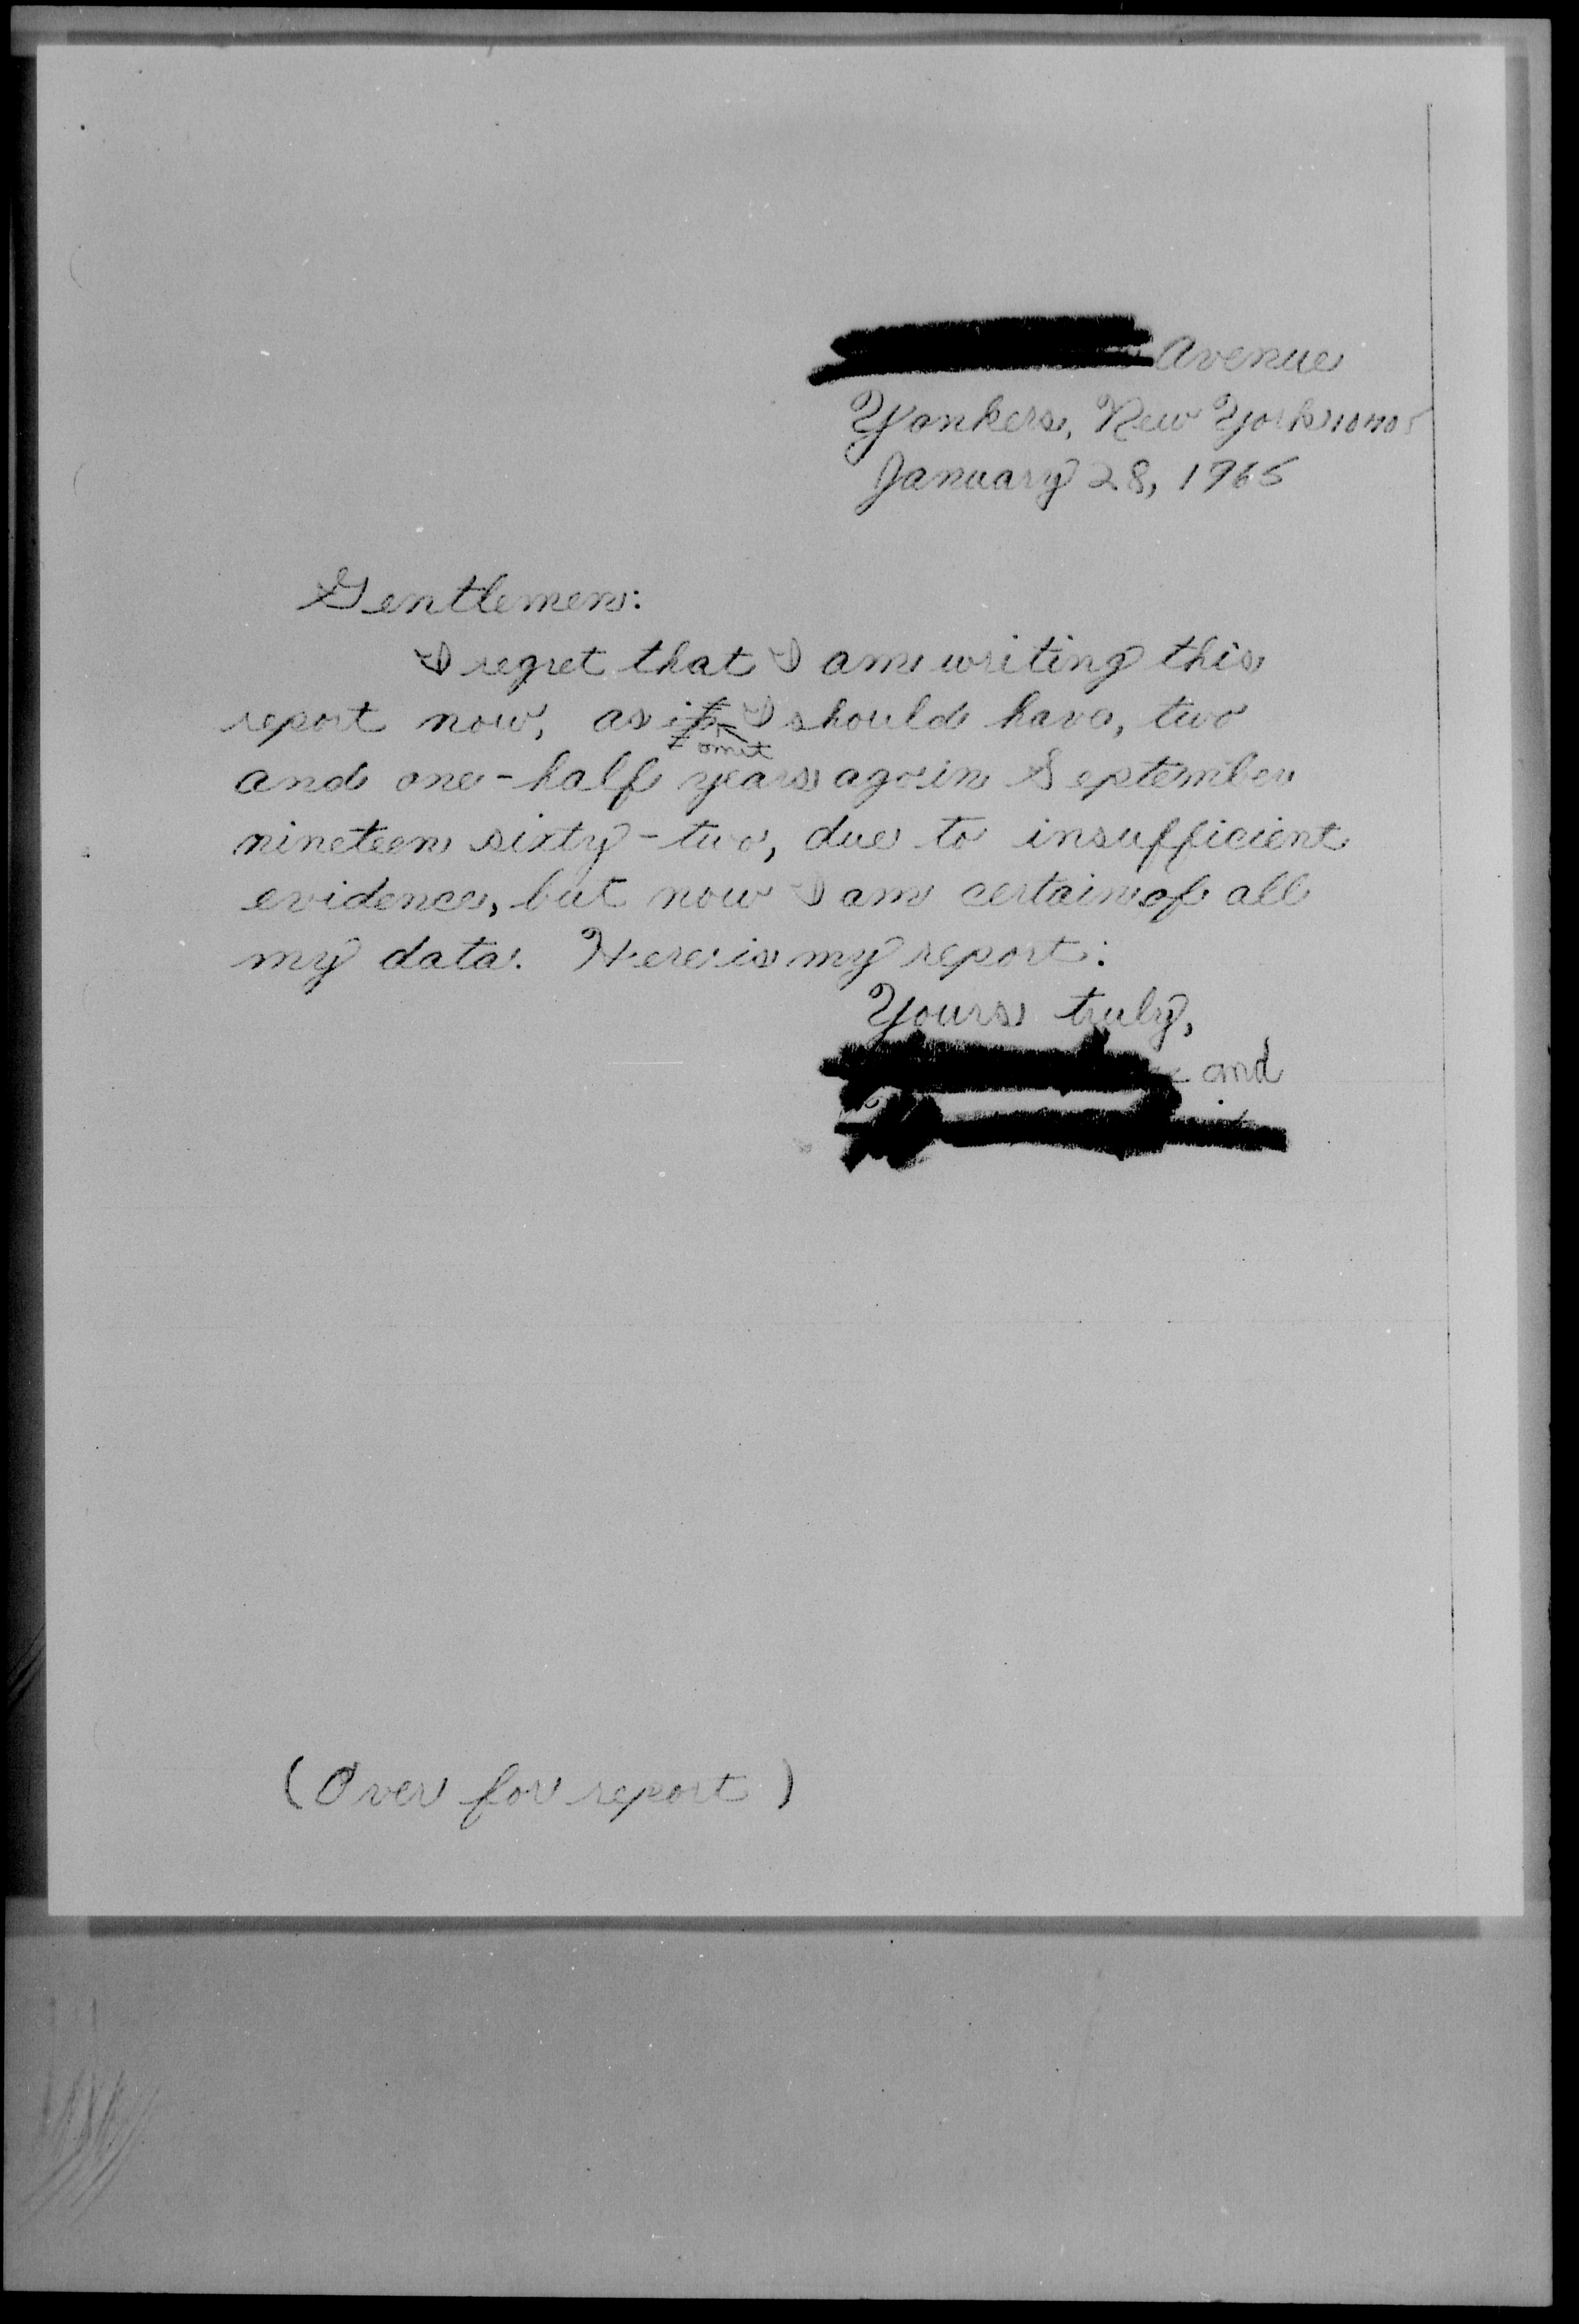 Avenue
Yonkers, New York 10705
January 28, 1965
Gentlemen:
I regret that I am writing this
report now, as it I should have, two
omit
and one-half years ago in September
nineteen sixty-two, due to insufficient
evidence, but now I am certain of all
my data. Here is my report:
Yours truly,
and
(Over for report)